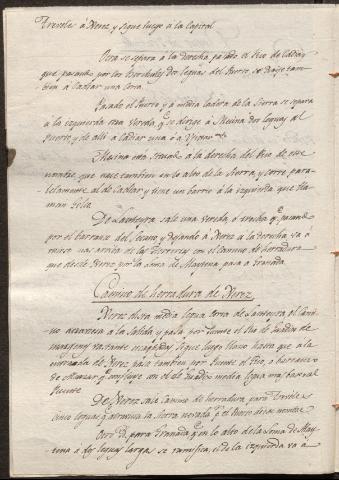 Trevelez a Xerez y sigue luego a la Capital
Otro se separa a la derecha, pasado el Rio de Cadiar
que pasando por los Borchales dos leguas del Puerto, se dirije tam-
bien a Cadiar una legua.
Pasado el Puerto y a media ladera de la Sierra se separa
a la izquierda otra vereda q.e se dirige a Mecina dos leguas al
Puerto, y de alli a Cadiar una ó a
Mecina esta situada a la derecha del Rio de este
nombre, que nace tambien en lo alto de la Sierra y corre para-
lelamente al de Cadiar y tiene un barrio a la izquierda que lla-
man
De Lanteyra sale una vereda ó trocha q.e pasando
por el barranco del y dejando a Xerez a la derecha va a
mas arriba de las Herrerias con el camino de herradura
que desde Xerez por la loma de Maytena pasa a Granada.
Camino de herradura de Xerez
Xerez dista media legua corta de Lanteyra el Cami-
no atraviesa a la salida y pasa por Puente el Rio de
bastante sigue luego llano hasta que a la
entrada de Xerez pasa tambien por Puente el Rio, o barranco
de Alcazar q.e confluye con el de media legua mas abajo al
Puente.
De Xerez sale Camino de herradura para Trevelez
cinco leguas q.e atraviesa la Sierra nevada p.r el Puerto de su nombre.
Otro id. para Granada q.e en lo alto de la loma de May-
tena a dos leguas largas se ramifica, el de la izquierda va a